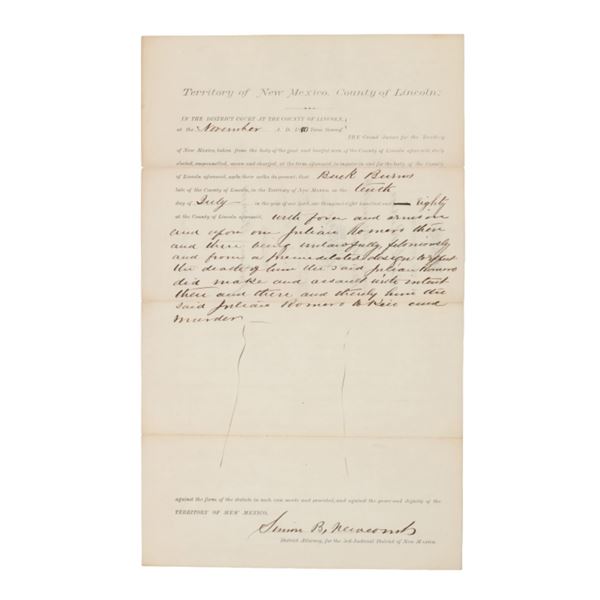 Territory of New Mexico, County of Lincoln:
IN THE DISTRICT COURT AT THE COUNTY OF LINCOLN,
at the November A. D. 1880 Term thereof
THE Grand Jurors for the Territory
of New Mexico, taken from the body of the good and lawful men of the County of Lincoln aforesaid, duly
elected, empannelled, sworn and charged, at the term aforesaid, to inquire in and for the body of the County
of Lincoln aforesaid, upon their oaths do present: that Buck Burns
late of the County of Lincoln, in the Territory of New Mexico, on the tenth
day of July in the year of our Lord, one thousand eight hundred and — Eighty
at the County of Lincoln aforesaid, with force and arms in
and upon one Julian Romero then
and there being unlawfully feloniously
and from a premeditated design to effect
the death of him the said Julian Romero
did make and assault with intent
then and there and thereby him the
said Julian Romero to Kill and
murder —
against the form of the statute in such case made and provided, and against the peace and dignity of the
TERRITORY OF NEW MEXICO.
Simon B. Newcomb
District Attorney, for the 3rd Judicial District of New Mexico.